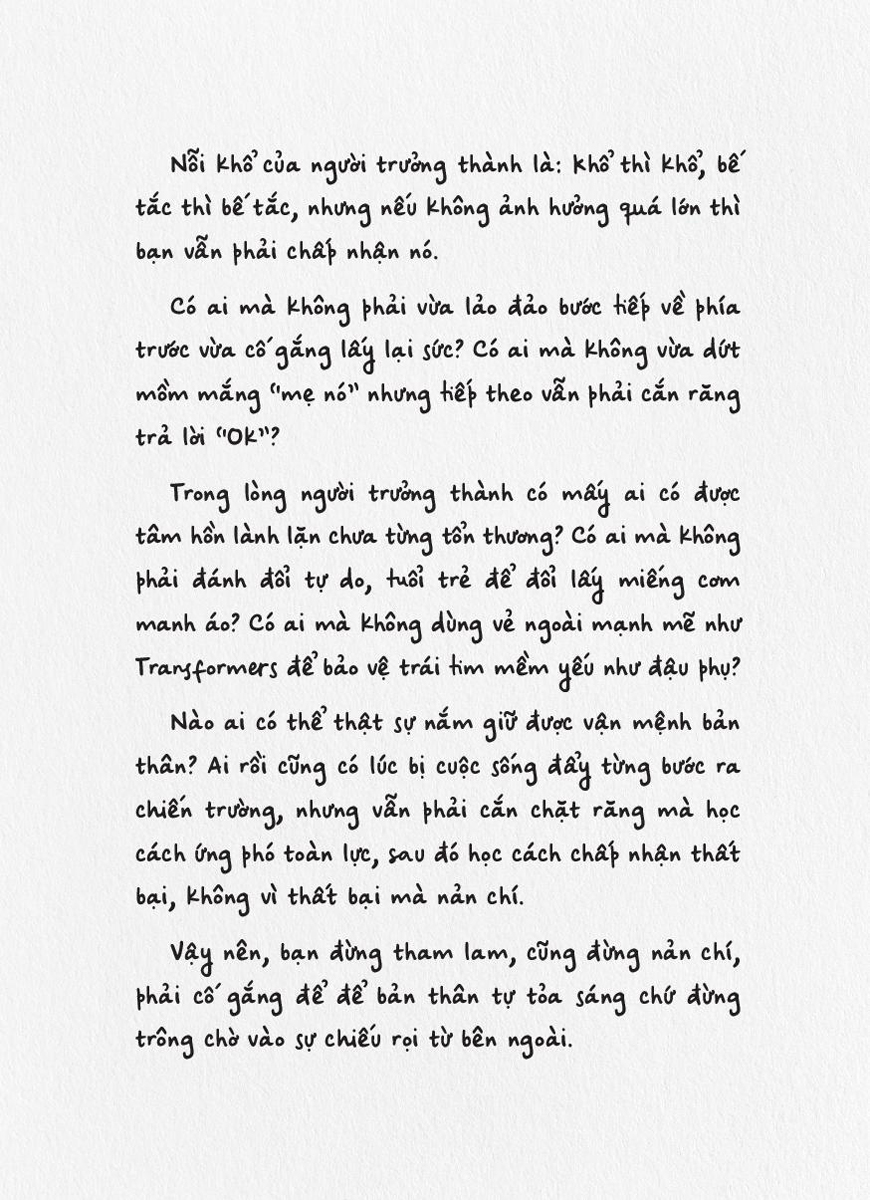 Nỗi khổ của người trưởng thành là: khổ thì khổ, bế
tắc thì bế tắc, nhưng nếu không ảnh hưởng quá lớn thì
bạn vẫn phải chấp nhận nó.
Có ai mà không phải vừa lảo đảo bước tiếp về phía
trước vừa cố gắng lấy lại sức? Có ai mà không vừa dứt
mồm mắng “mẹ nó” nhưng tiếp theo vẫn phải cắn răng
trả lời “Ok”?
Trong lòng người trưởng thành có mấy ai có được
tâm hồn lành lặn chưa từng tổn thương? Có ai mà không
phải đánh đổi tự do, tuổi trẻ để đổi lấy miếng cơm
manh áo? Có ai mà không dùng vẻ ngoài mạnh mẽ như
Transformers để bảo vệ trái tim mềm yếu như đậu phụ?
Nào ai có thể thật sự nắm giữ được vận mệnh bản
thân? Ai rồi cũng có lúc bị cuộc sống đẩy từng bước ra
chiến trường, nhưng vẫn phải cắn chặt răng mà học
cách ứng phó toàn lực, sau đó học cách chấp nhận thất
bại, không vì thất bại mà nản chí.
Vậy nên, bạn đừng tham lam, cũng đừng nản chí,
phải cố gắng để để bản thân tự tỏa sáng chứ đừng
trông chờ vào sự chiếu rọi từ bên ngoài.